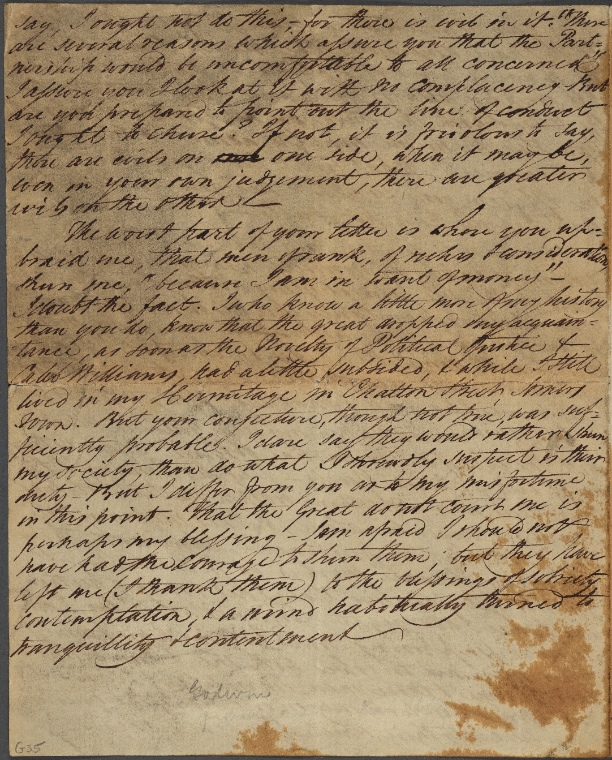 say, I ought not do this – for there is evil in it. "There
are several reasons which assure you that the Part=
nership would be uncomfortable to all concerned".
I assure you I look at it with no complacency. But
are you prepared to point out the line of conduct
I ought to chuse? If not, it is frivolous to say,
there are evils on one side, when it may be,
even in your own judgement, there are greater
evils on the other. —
The worst part of your letter is where you up=
braid me, that men of rank, of riches & consideration
shun me, "because I am in want of money" –
I doubt the fact. I who know a little more of my history
than you do, know that the great dropped my acquain=
tance, as soon as the Novelty of Political Justice &
Caleb Williams had a little subsided, & while I still
lived in my Hermitage in Chalton Street Somers
Town. But your conjecture, though not true, was suf=
ficiently probable. I dare say they would rather shun
my society, than do what I shrewdly suspect is their
duty – But I differ from you as to my misfortune
in this point. That the Great do not court me is
perhaps my blessing – I am afraid I should not
have had the courage to shun them: but they have
left me (I thank them) to the blessings of sobriety,
contemplation, & a mind habitually turned to
tranquillity & contentment
Godwin
G55